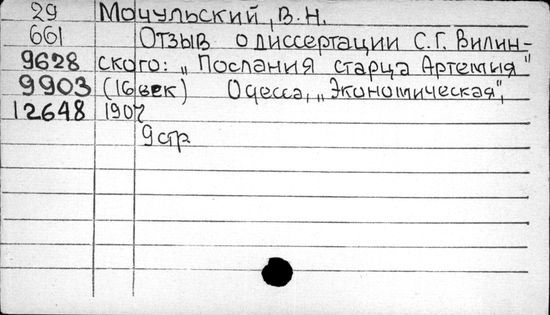 29 Мочульский, В. Н.
661 Отзыв о диссертации С. Г. Вилин-
9628 ского: „Послания старца Артемия"
9903 (16 век) Одесса, „Экономическая",
12648 1907
9 стр